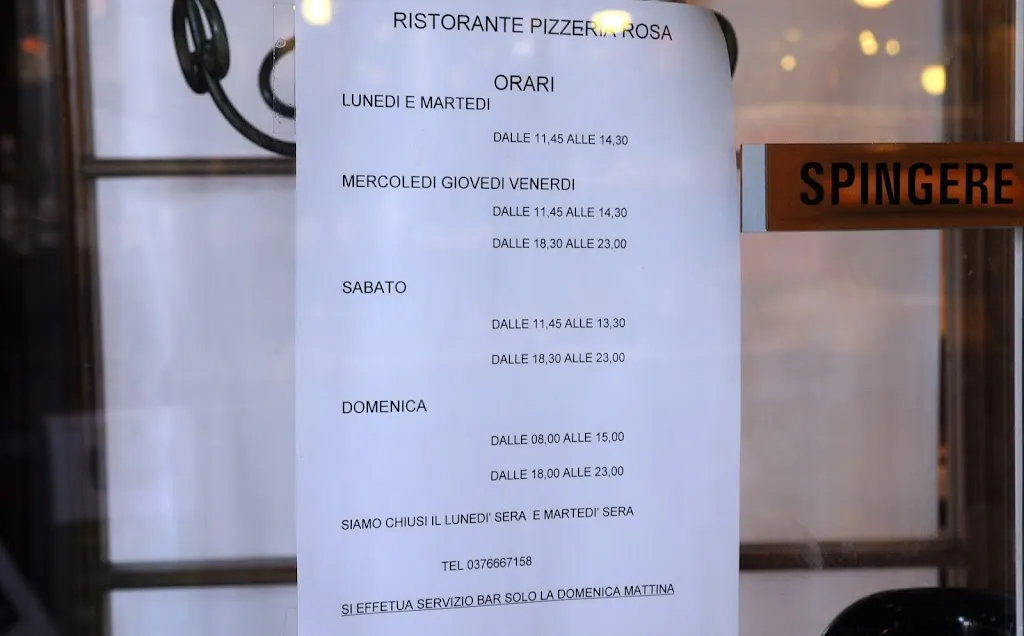 RISTORANTE PIZZERIA ROSA
ORARI
LUNEDI E MARTEDI
DALLE 11,45 ALLE 14,30
MERCOLEDI GIOVEDI VENERDI
DALLE 11,45 ALLE 14,30
DALLE 18,30 ALLE 23,00
SABATO
DALLE 11,45 ALLE 13,30
DALLE 18,30 ALLE 23,00
DOMENICA
DALLE 08,00 ALLE 15,00
DALLE 18,00 ALLE 23,00
SIAMO CHIUSI IL LUNEDI' SERA E MARTEDI' SERA
TEL 0376667158
SI EFFETUA SERVIZIO BAR SOLO LA DOMENICA MATTINA
SPINGERE